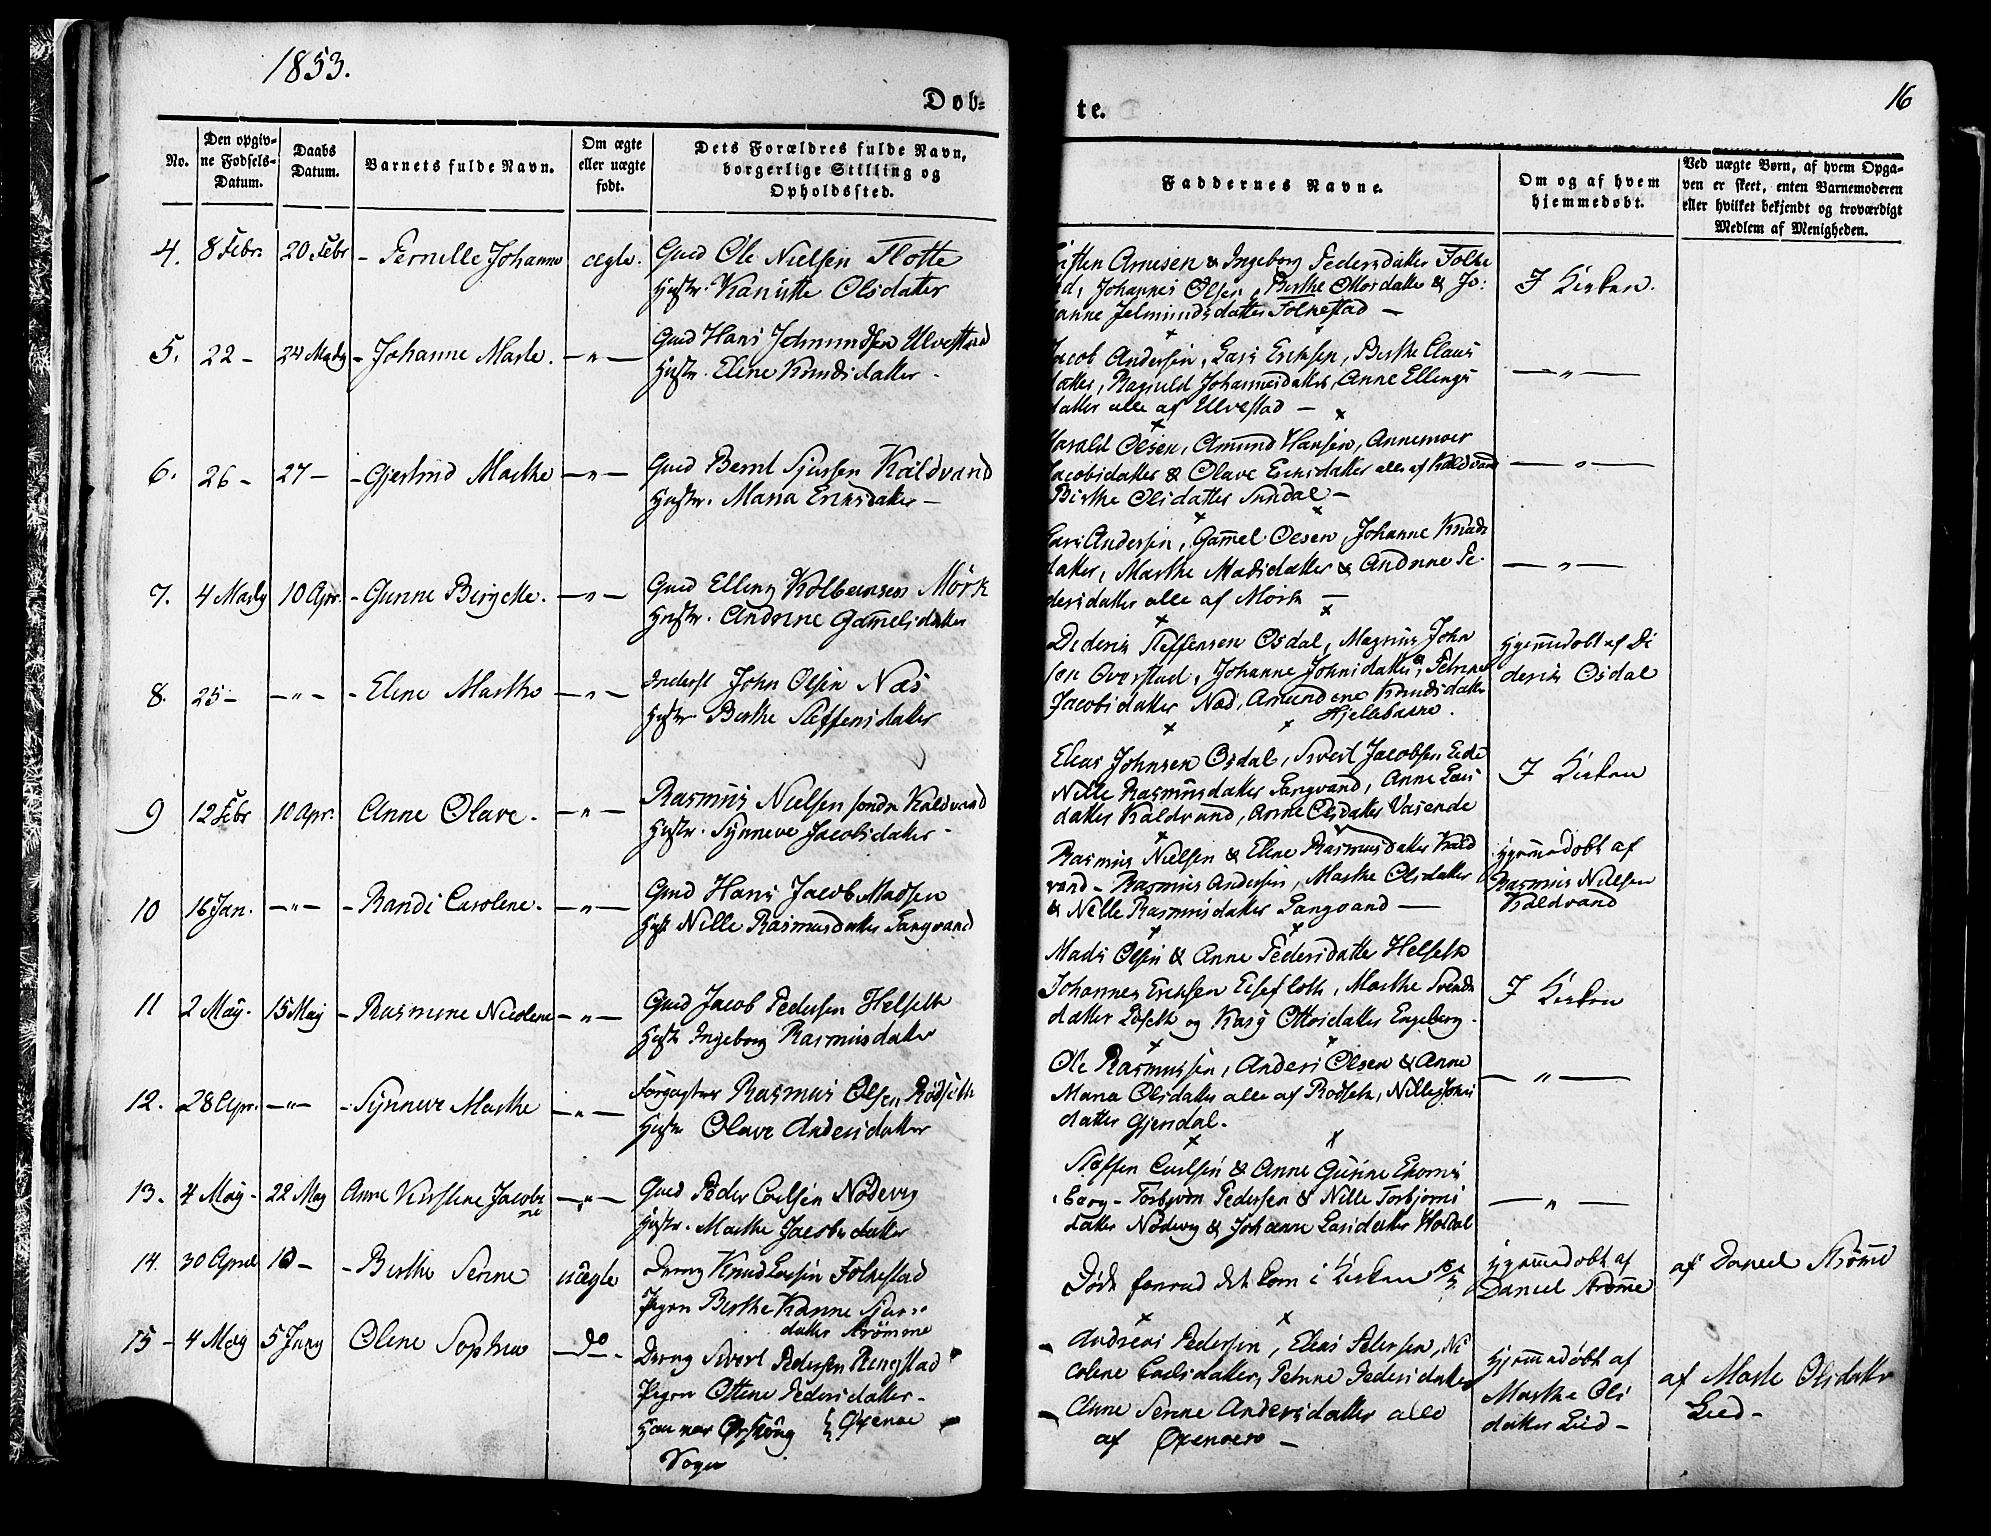 1853.
Døb-
te.
16
No.
Den opgiv-
ne Fødsels-
Datum.
Daabs
Datum.
Barnets fulde Navn.
Om ægte
eller uægte
født.
Dets Forældres fulde Navn,
borgerlige Stilling og
Opholdssted.
Faddernes Navne.
Om og af hvem
hjemmedøbt.
Ved uægte Børn, af hvem Opga-
ven er skeet, enten Barnemoderen
eller hvilket bekjendt og troværdigt
Medlem af Menigheden.
4. 8 Febr. 20 Febr - Pernille Johanne ægte. Gmd Ole Nielsen Flotte
Hustr. Karütte Olsdatter
Arnesen & Ingeborg Pedersdatter Folke
Johannes Olsen, Berthe Ottosdatter & Jo:
Jetmundsdatter Folkestad —
I Kirken.
5. 22 - 24 Marts - Johanne Marte. — " — Gmd Hans Jetmundsen Ulvestad
Hustr. Eline Knudsdatter -
Jacob Andersen, Lars Eriksen, Berthe Claus
datter, Ragnild Johannesdatter, Anne Ellings
datter alle af Ulvestad —
— " —
6. 26 - 27 - - Gjertrud Marthe — " — Gmd Bernt Sjursen Kaldvand
Hustr. Maria Eriksdatter —
Harald Olsen, Amund Hansen, Annemoer
Jacobsdatter & Olave Eriksdatter alle af Kaldvand
Birthe Olsdatter Sundal —
— " —
7. 4 Marts 10 Apr. - Gunne Birgitte. — " — Gmd Elling Kolbeinsen Mørk
Hustr. Andrine Gamelsdatter
Lars Andersen, Gammel Olsen, Johanne Knuds
datter, Marthe Madsdatter & Andrine Pe-
dersdatter alle af Mørk —
— " —
8. 25 - — " — - Eline Marthe — " — Inderst John Olsen Næs
Hustr. Berthe Steffensdatter
Diderik Steffensen Osdal, Magnus John
sen Overstad, Johanne Johnsdatter, Petrine
Jacobsdatter Næs, Amundine Knudsdatter
Hjelebakke.
Hjemmedøbt af Di
derik Osdal
9 12 Febr 10 Apr. Anne Olave. — " — Rasmus Nielsen søndre Kaldvand
Hustr. Synneve Jacobsdatter -
Elias Johnsen Osdal, Sivert Jacobsen Eide
Nille Rasmusdatter Langvand, Anne Lars
datter Kaldvand, Anne Olsdatter Vasende
I Kirken
10 16 Jan. — " — - Randi Caroline. — " — Gmd Hans Jacob Madsen
Hust Nille Rasmusdatter Langvand
Rasmus Nielsen & Eline Rasmusdatter Kald
vand - Rasmus Andersen, Marthe Olsdatter
& Nille Rasmusdatter Langvand —
Hjemmedøbt af
Rasmus Nielsen
Kaldvand
11 2 May. 15 May - Rasmine Nicoline — " — Gmd Jacob Pedersen Helseth
Hustr Ingeborg Rasmusdatter
Mads Olsen & Anne Pedersdatter Helseth
Johannes Eriksen Marthe Svends
datter og Kary Ottosdatter Engeberg.
I Kirken
12. 28 Apr. — " — - Synneve Marthe — " — Forpagter Rasmus Olsen Rødseth
Hustr Olave Andersdatter
Ole Rasmussen, Anders Olsen & Anne
Maria Olsdatter alle af Rødseth, Nille Jons
datter Gjendal.
— " —
13. 4 May - 22 May Anne Kirstine Jacobi
ne — " — Gmd Peder Carlsen Nødevig
Hustr. Marthe Jacobsdatter
Steffen Carlsen & Anne Gurine Ekorns
Torbjørn Pedersen & Nille Torbjørns
datter Nødevig & Johanne Larsdatter Hovdal
— " —
14. 30 April 16 - - Berthe Serine uægte Dreng Knud Larsen Folkestad
Pigen Berthe Karine Sjurs-
datter Strømme
Døde førend det kom i Kirken
Hjemmedøbt af
Daniel Strømme
af Daniel Strømme
15 - 4 May 5 Juny Oline Sophia — Do — Dreng Sivert Pedersen Ringstad
Pigen Ottine Pedersdatter -
Han var Ørskoug } Oxenøe
Sogn
Andreas Pedersen, Elias Petersen, Ni
coline Carlsdatter, Petrine Pedersdatter
Anne Serine Andersdatter alle
af Oxenøen —
Hjemmedøbt af
Marthe Ols
datter Lied -
af Marte Olsdatter
Lied -